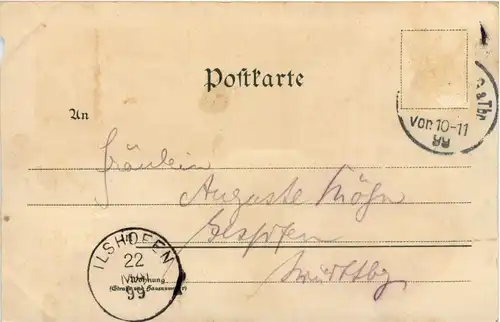 Postkarte
An
Fräulein
Auguste
in
Württbg
Wohnung
(Straße und Hausnummer)
ILSHOFEN
22
99
Vor. 10-11